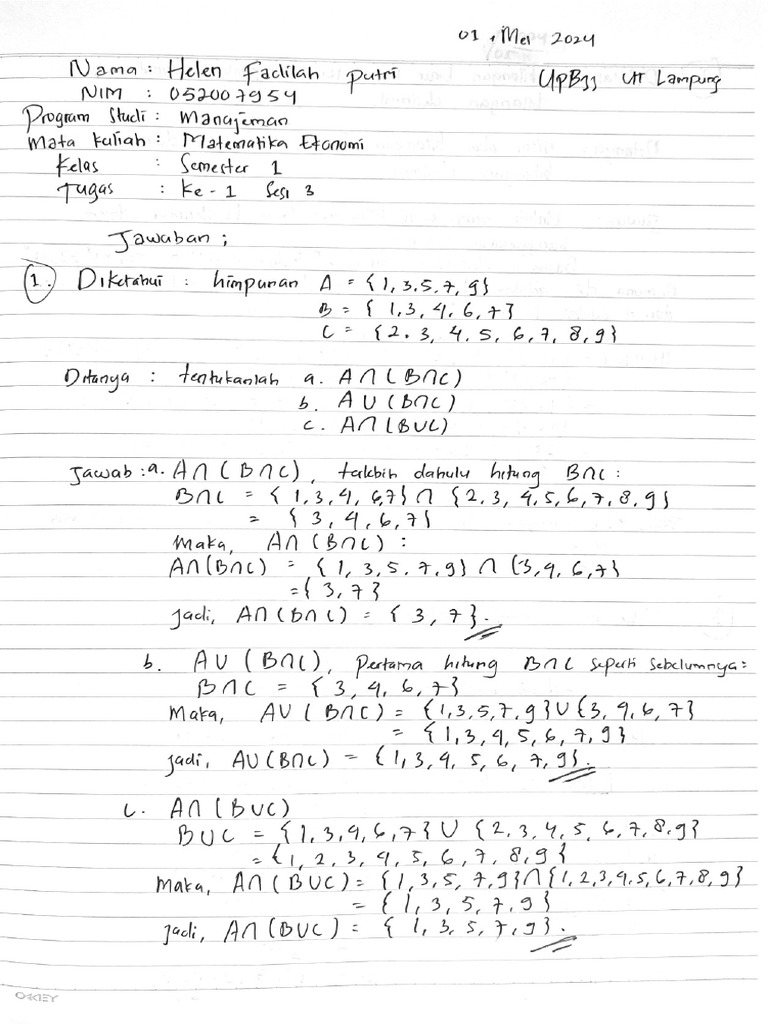 01, Mei 2024
Nama : Helen Fadilah Putri UPBJJ UT Lampung
NIM : 052007954
Program Studi : Manajeman
Mata kuliah : Matematika Ekonomi
Kelas : Semester 1
Tugas : Ke - 1 Sesi 3
Jawaban ;
1. Diketahui : himpunan A = {1, 3, 5, 7, 9}
B = { 1, 3, 4, 6, 7}
C = {2. 3, 4. 5, 6, 7, 8, 9}
Ditanya : tentukanlah a. A∩(B∩C)
b. A∪(B∩C)
c. A∩(B∪C)
Jawab : a. A∩(B∩C), terlebih dahulu hitung B∩C :
B∩C = { 1, 3, 4, 6,7} ∩ {2. 3, 4, 5, 6, 7, 8, 9}
= { 3, 4, 6, 7}
Maka, A∩(B∩C) :
A∩(B∩C) = {1, 3, 5, 7, 9} ∩ (3, 4, 6, 7}
= { 3, 7}
Jadi, A∩(B∩C) = { 3, 7}.
b. A∪(B∩C), Pertama hitung B∩C seperti sebelumnya :
B∩C = { 3, 4, 6, 7}
Maka, A∪(B∩C) = {1, 3, 5, 7, 9}∪{3, 4, 6, 7}
= {1, 3, 4, 5, 6, 7, 9}
Jadi, A∪(B∩C) = {1, 3, 4, 5, 6, 7, 9}.
c. A∩(B∪C)
B∪C = {1, 3, 4, 6, 7}∪ {2, 3, 4, 5, 6, 7, 8, 9}
= {1, 2, 3, 4, 5, 6, 7, 8, 9}
Maka, A∩(B∪C) = {1, 3, 5, 7, 9}∩{1, 2, 3, 4, 5, 6, 7, 8, 9}
= {1, 3, 5, 7, 9}
Jadi, A∩(B∪C) = { 1, 3, 5, 7, 9}.